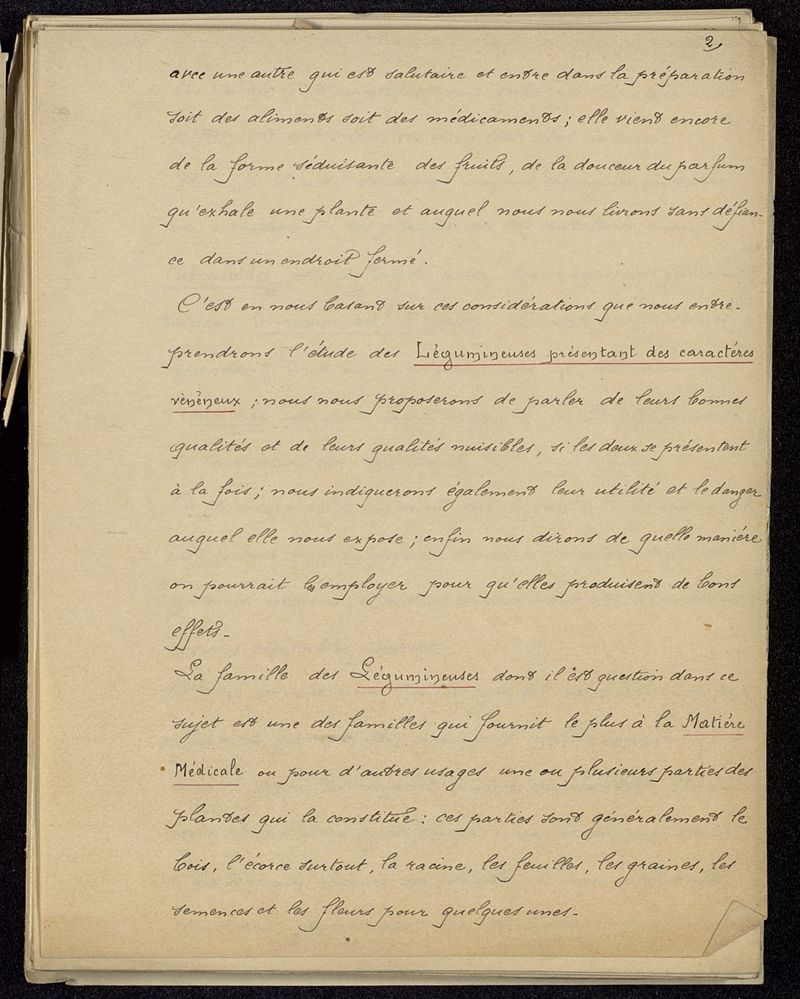 2
avec une autre qui est salutaire et entre dans la préparation
soit des aliments soit des médicaments ; elle vient encore
de la forme séduisante des fruits, de la douceur du parfum
qu'exhale une plante et auquel nous nous livrons sans défian-
ce dans un endroit fermé.
C'est en nous basant sur ces considérations que nous entre-
prendrons l'étude des Légumineuses présentant des caractéres
vénéneux ; nous nous proposerons de parler de leurs bonnes
qualités et de leurs qualités nuisibles, si les deux se présentent
à la fois ; nous indiquerons également leur utilité et le danger
auquel elle nous expose ; enfin nous dirons de quelle maniére
on pourrait les employer pour qu'elles produisent de bons
effets.
La famille des Légumineuses dont il est question dans ce
sujet est une des familles qui fournit le plus à la Matiére
Médicale ou pour d'autres usages une ou plusieurs parties des
plantes qui la constitue : ces parties sont généralement le
bois, l'écorce surtout, la racine, les feuilles, les graines, les
semences et les fleurs pour quelques unes.